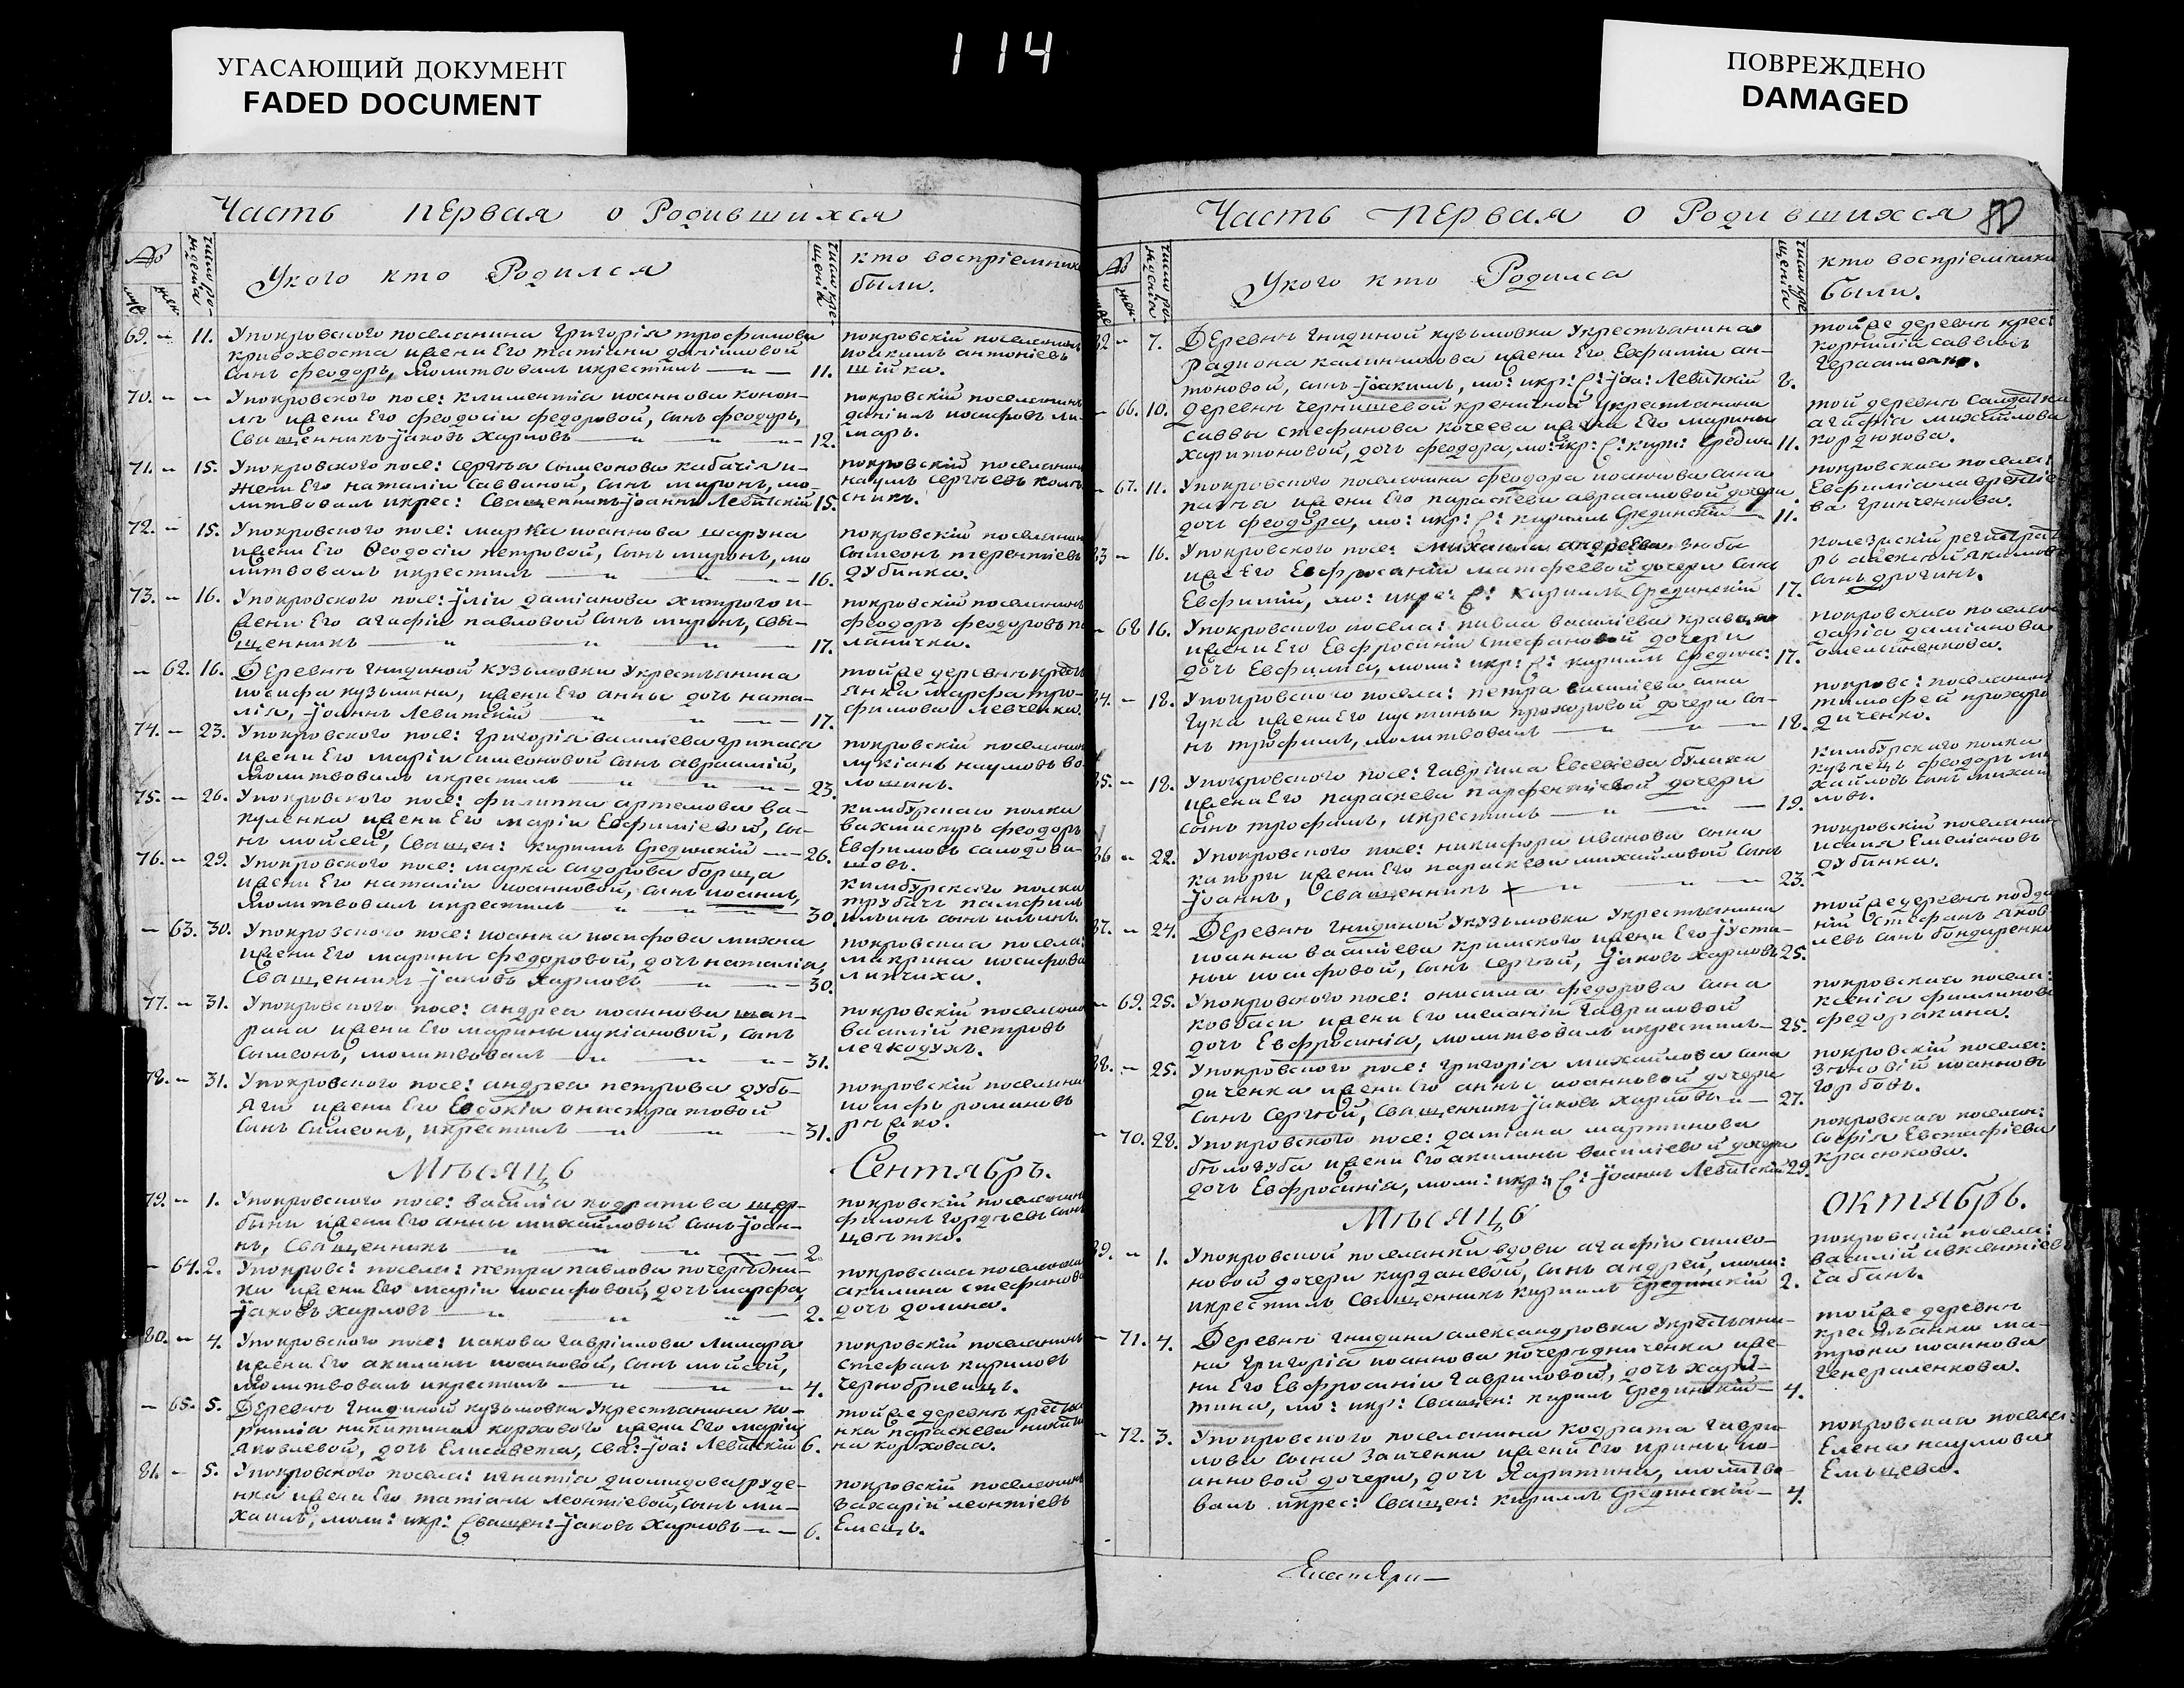 УГАСАЮЩИЙ ДОКУМЕНТ
FADED DOCUMENT
114
ПОВРЕЖДЕНО
DAMAGED
Часть первая о Родившихся
№
Укого кто Родился
кто воспріемники
были.
69. – 11. Упокровского поселянина григорія трофимова
кривохвоста ижени Его татіаны даніиловой
сынъ феодоръ, молитвовалъ икрестилъ 11.
покровскій поселянинъ
иоакимъ антоніевъ
шійка.
70. – – Упокровского посе: климентія иоаннова коноп-
лѣ ижени Его феодосіи федоровой, сынъ феодоръ,
Священникъ Іаковъ Харловъ 12.
покровскій поселянинъ
даніилъ иосифовъ ли-
маръ.
71. – 15. Упокровского посе: сергѣя сымеонова кабачія и-
жени Его наталіи саввиной, сынъ миронъ, мо-
литвовалъ икрес: Священникъ Іоаннъ Левитскій 15.
покровскій поселянинъ
наумъ сергѣевъ коле-
сникъ.
72. – 15. Упокровского посе: марка иоаннова шаруна
ижени Его Ѳеодосіи петровой, сынъ миронъ, мо
литвовалъ икрестилъ 16.
покровскій поселянинъ
сымеонъ терентіевъ
дубинка.
73. – 16. Упокровского посе: Іліи даміанова хитрого и-
жени Его агафіи павловой сынъ миронъ, свя-
щенникъ 17.
покровскій поселянинъ
феодоръ феодоровъ па
ланичка.
– 62. 16. Деревнѣ гнидиной кузьмовки Укрестьянина
иосифа кузьмина, ижени Его анны дочь ната-
лія, Іоаннъ Левитскій 17.
тойже деревнѣ кресть
янка марфа тро-
фимова левченка.
74. – 23. Упокровского посе: григорія василіева грипаса
ижени Его маріи симеоновой сынъ авраамій,
молитвовалъ икрестилъ 23.
покровскій поселянинъ
лукіанъ наумовъ во
лошинъ.
75. – 26. Упокровского посе: филиппа артемова ва-
куленка ижени Его маріи Евфиміевой, сы-
нъ мойсей, Священ: кирилъ Срединскій 26.
кимбурскаго полка
вахмистръ феодоръ
Евфимовъ самодови-
шовъ.
76. – 29. Упокровского посе: марка сидорова борща
ижени Его наталіи иоанновой, сынъ иоаннъ,
молитвовалъ икрестилъ 30.
кимбурскаго полка
трубачъ памфилъ
ильинъ сынъ ильинъ.
– 63. 30. Упокровского посе: иоанна иосифова михна
ижени Его марины федоровой, дочь наталія,
Священникъ Іаковъ Харловъ 30.
покровская посела:
макрина иосифова
линчиха.
77. – 31. Упокровского посе: андрея иоаннова шап-
рана ижени Его марины лукіановой, сынъ
сымеонъ, молитвовалъ 31.
покровскій поселянинъ
василій петровъ
легкодухъ.
78. – 31. Упокровского посе: андрея петрова дубъ-
яги ижени Его Евдокіи онистратовой
сынъ Симеонъ, икрестилъ 31.
покровскій поселянинъ
иосифъ романовъ
рѣжко.
Мѣсяцъ Сентябрь.
79. – 1. Упокровского посе: василія кодратива щер-
бины ижени Его анны михайловой сынъ Іоан-
нъ, священникъ 2.
покровскій поселянинъ
филонъ гордѣевъ сынъ
щеѣтко.
– 64. 2. Упокровс: посела: петра павлова почерѣдни-
ки ижени Его маріи иосифовой, дочь марфа,
Іаковъ Харловъ 2.
покровская поселянка
акилина стефанова
дочь долина.
80. – 4. Упокровского посе: иакова гавріилова лимара
ижени Его акилины иоанновой, сынъ мойсей,
молитвовалъ икрестилъ 4.
покровскій поселянинъ
стефанъ кириловъ
чернобривецъ.
– 65. 5. Деревнѣ гнидиной кузьмовки Укрестьянина ко-
рнилія никитина коржового ижени Его маріи
яковлевой, дочь Елисавета, свя: Іоа: Левитскій 6.
тойже деревнѣ крестья
нка параскева никити
на коржовая.
81. – 5. Упокровского посела: игнатія диомидова руде-
нка ижени Его татіаны леонтіевой, сынъ ми-
хаилъ, моли: икр: Священ: Іаковъ Харловъ 6.
покровскій поселянинъ
захарій леонтіевъ
Емецъ.
Часть первая о Родившихся
№
Укого кто Родился
кто воспріемники
были.
82 – 7. Деревнѣ гнидиной кузьмовки Укрестьянина
радиона калинникова ижени Его Евфиміи ан-
тоновой, сынъ Іоакимъ, мо: икр: С: Іоа: Левитскій 8.
тойже деревнѣ крес:
корнилій саввинъ
герасименко.
– 66. 10. Деревнѣ чернишевой креничной Укрестьянина
саввы стефанова кочеева ижени Его марины
харитоновой, дочь феодора, мо: икр: С: кири: Средин 11.
той деревнѣ салдатка
агафія михайлова
кордюкова.
– 67. 11. Упокровского поселянина феодора иоаннова сына
панча ижени Его параскеви авраамовой дочери
дочь феодора, мо: икр: С: кирилъ Срединскій 11.
покровская посела:
Евфимія лаврентіе-
ва гринченкова.
83 – 16. Упокровского посе: михаила андреева зюбы
иже Его Евфросиніи матфеевой дочери сынъ
Евфимій, мо: икре: С: кирилъ Срединскій 17.
колежскій регистрат
ръ алексѣй якимовъ
сынъ дрогинъ.
– 68 16. Упокровского посела: павла василіева кравця
ижени Его Евфросиніи стефановой дочери
дочь Евфимія, моли: икр: С: кирилъ Средин: 17.
покровская поселян
дарія даміанова
омельяненкова.
84. – 18. Упокровского посела: петра василіева сына
гука ижени Его иустиньи прохоровой дочери сы-
нъ трофимъ, молитвовалъ 18.
покровс: поселянинъ
тимофей прохоро
диченко.
85. – 18. Упокровского посе: гавріила Евсевіева булика
ижени Его параскеви парфентіевой дочери
сынъ трофимъ, икрестилъ 19.
кимбурскаго полка
кузнецъ феодоръ ми
хайловъ сынъ михаи
ловъ.
86 – 22. Упокровского посе: никифора иванова сына
капори ижени Его параскеви михайловой сынъ
Іоаннъ, Священникъ 23.
покровскій поселянин
исаія Емеліановъ
дубинка.
87. – 24. Деревнѣ гнидиной Укузьмовки Укрестьянина
иоанна василіева кримского ижени Его Іусти-
ньи иосифовой, сынъ сергѣй, Іаковъ Харловъ 25.
тойжедеревнѣ подда
ній Стефанъ яков
левъ сынъ бондаренко
– 69. 25. Упокровского посе: онисима федорова сына
ковбаси ижени Его меланіи гавриловой
дочь Евфросинія, молитвовалъ икрестилъ 25.
покровская посела:
ксенія филипова
федоракина.
88. – 25. Упокровского посе: григорія михайлова сына
диченка ижени Его анны иоанновой дочери
сынъ Сергѣй, священникъ Іаковъ Харловъ 27.
покровскій посела:
зѣновій иоанновъ
горбовъ.
– 70. 28. Упокровского посе: даміана мартинова
бѣлогуба ижени Его акилины василіевой дочери
дочь Евфросинія, моли: икр: С: Іоаннъ Левитскій 29.
покровская посела:
софія Евстафіева
красюкова.
Мѣсяцъ октябрь.
89. – 1. Упокровской поселянки вдови агафіи симео-
новой дочери кирданевой, сынъ андрей, моли:
икрестилъ Священникъ кирилъ Срединскій 2.
покровскій посела:
василій авксентіевъ
чабанъ.
– 71. 4. Деревнѣ гнидини александровки Укрестьяни-
на григорія иоаннова почерѣдниченка иже-
ни Его Евфросиніи гавриловой, дочь хари-
тина, мо: икр: Священ: кирилъ Срединскій 4.
тойже деревнѣ
крестьянка ма-
трона иоаннова
генераленкова.
– 72. 3. Упокровского поселянина кодрата гаври
лова сына заиченка ижени Его ирины ио-
анновой дочери, дочь Харитина, молитво-
валъ икрес: Священ: кирилъ Срединскій 4.
покровская посела:
Елена наумова
Емьцева.